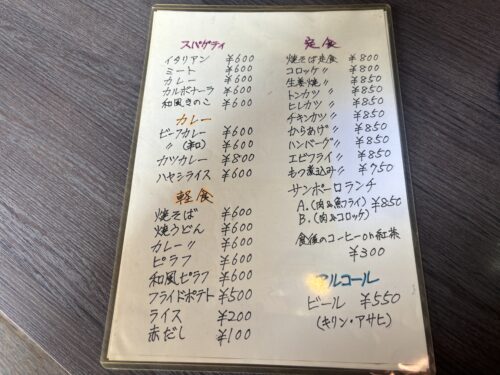 スパゲティ
イタリアン ¥600
ミート ¥600
カレー ¥600
カルボナーラ ¥600
和風きのこ ¥600
カレー
ビーフカレー ¥600
〃 (和) ¥600
カツカレー ¥800
ハヤシライス ¥600
軽食
焼そば ¥600
焼うどん ¥600
カレー〃 ¥600
ピラフ ¥600
和風ピラフ ¥600
フライドポテト ¥500
ライス ¥200
赤だし ¥100
定食
焼そば定食 ¥800
コロッケ 〃 ¥800
生姜焼 〃 ¥850
トンカツ 〃 ¥850
ヒレカツ 〃 ¥850
チキンカツ 〃 ¥850
からあげ 〃 ¥850
ハンバーグ 〃 ¥850
エビフライ 〃 ¥850
もつ煮込み 〃 ¥750
サンボーロランチ
A.(肉&魚フライ) ¥850
B.(肉&コロッケ)
食後のコーヒーon紅茶
¥300
アルコール
ビール ¥550
(キリン・アサヒ)